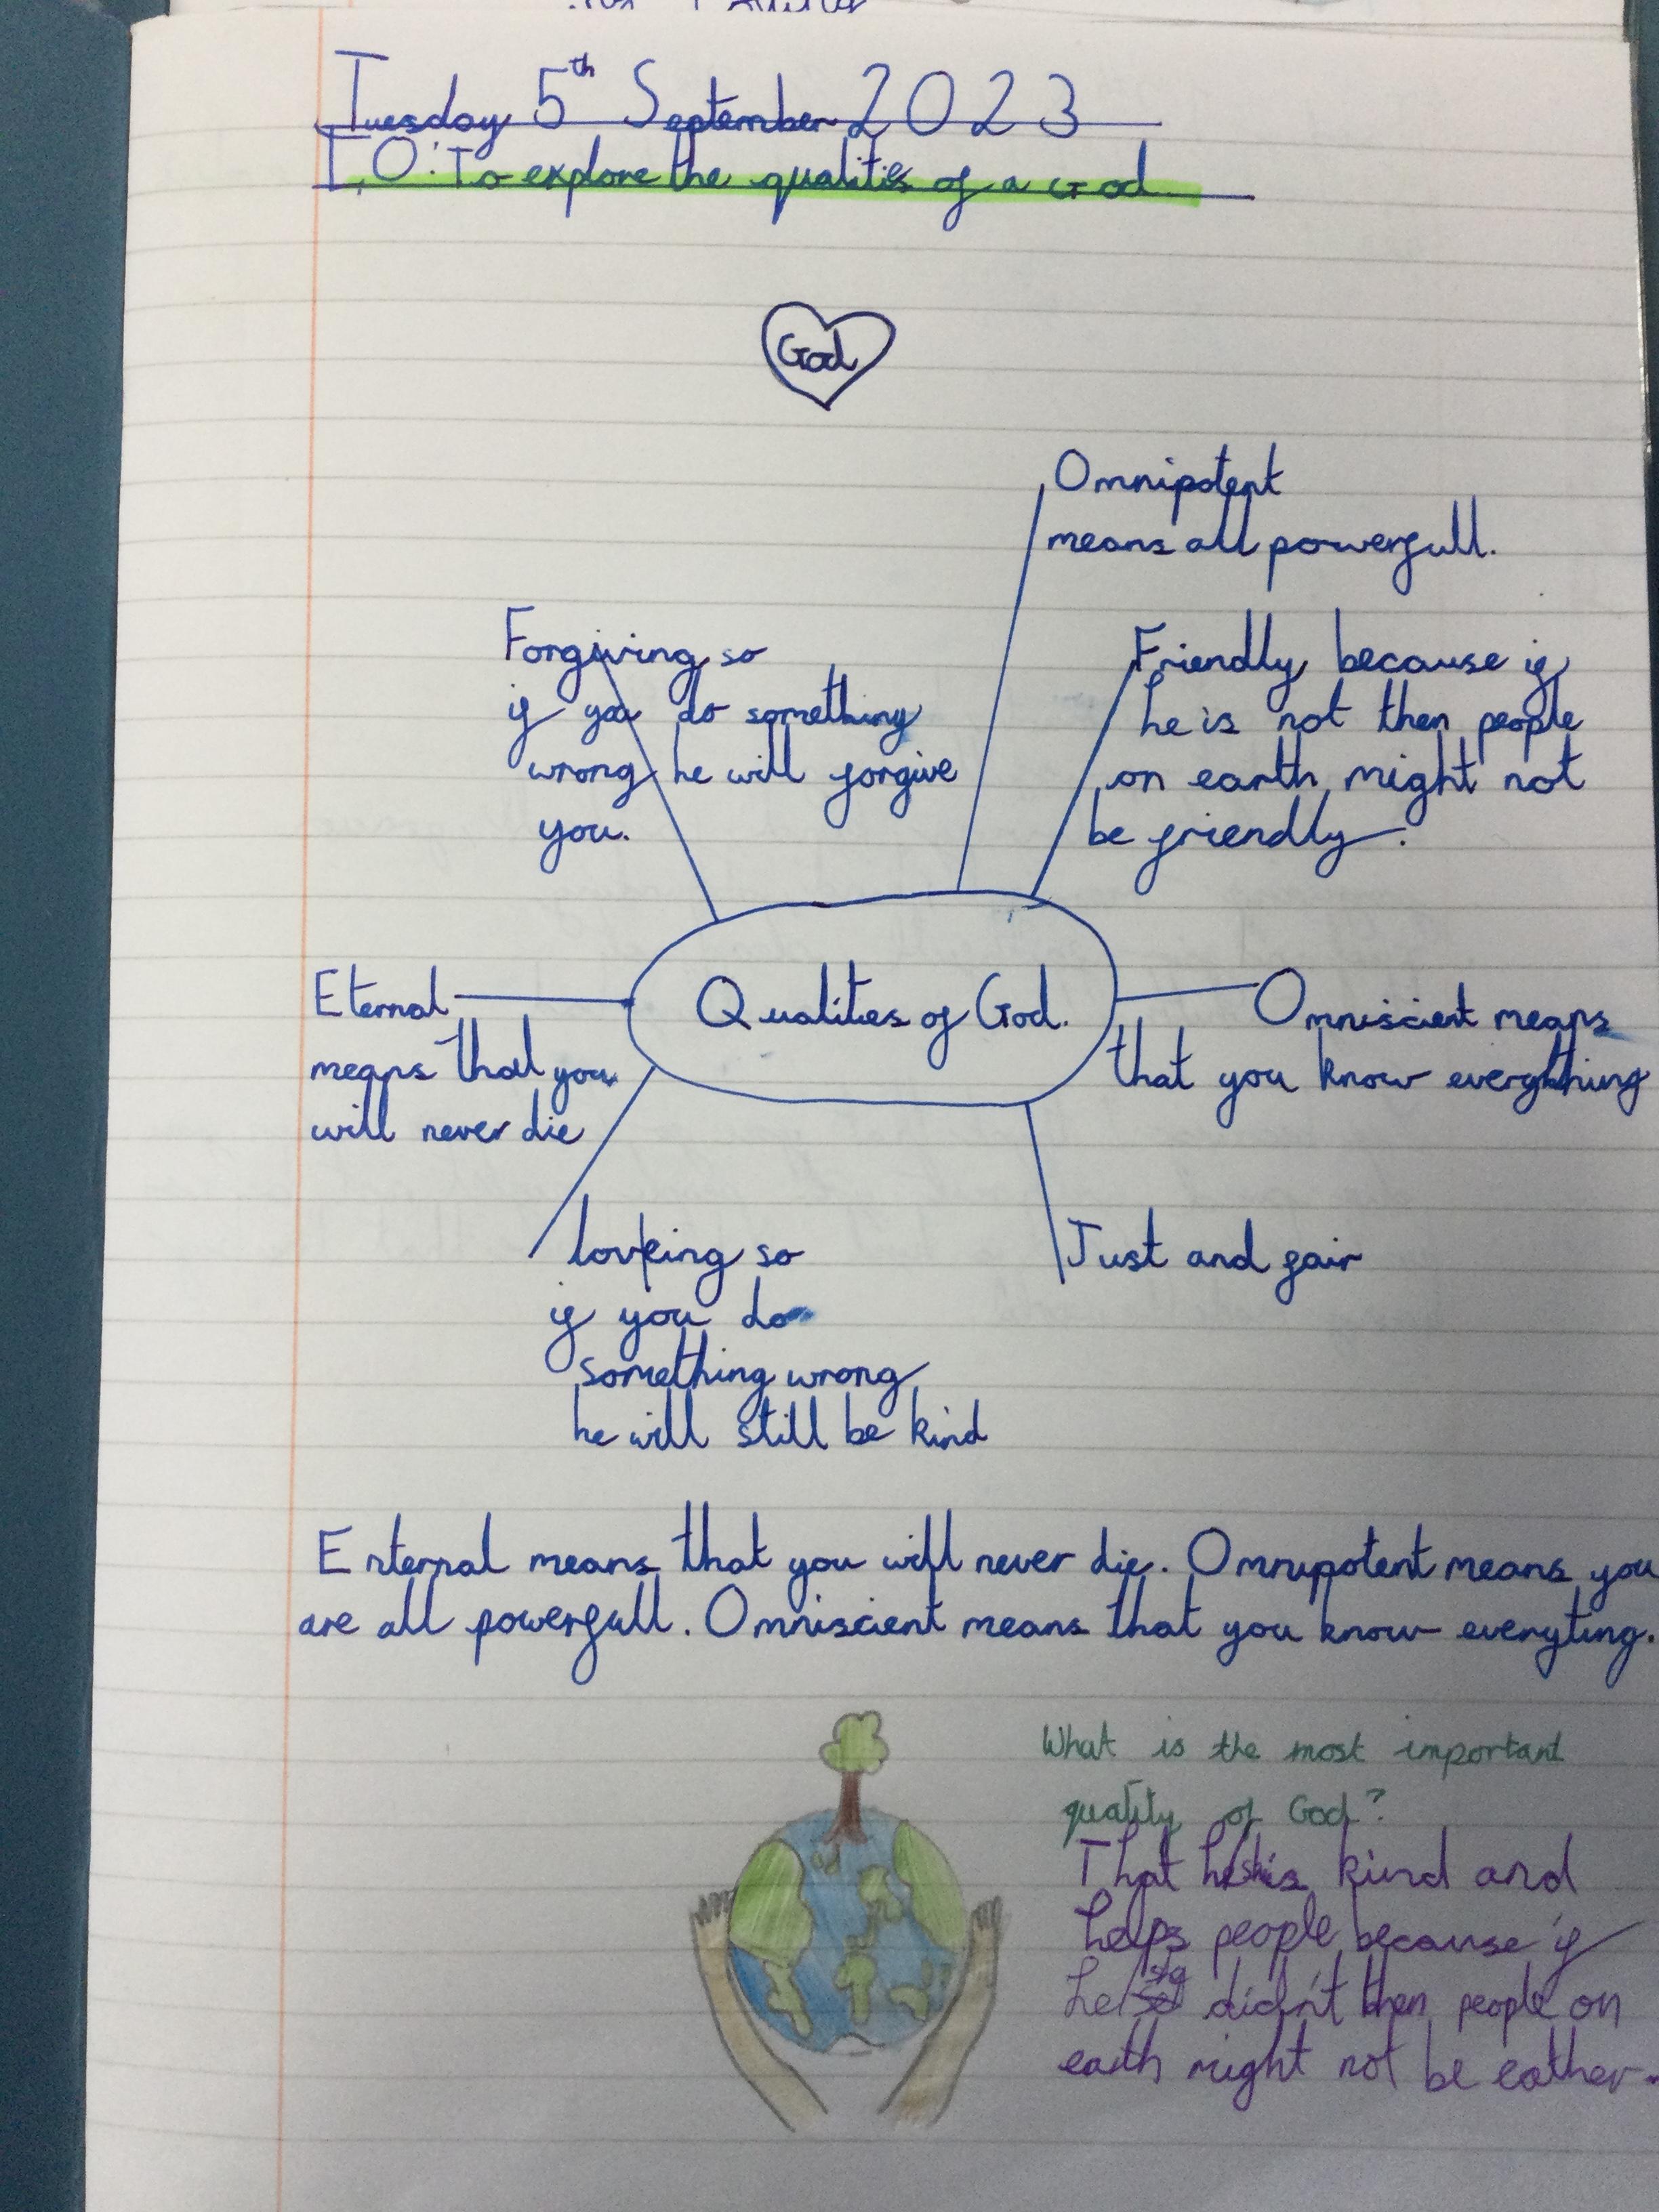 Tuesday 5th September 2023
I.O: To explore the qualities of a God
God
Omnipotent
means all powerfull.
Forgiving so
if you do something
wrong he will forgive
you.
Friendly because if
he is not then people
on earth might not
be friendly.
Eternal
means that you
will never die
Qualities of God.
Omniscient means
that you know everything
loving so
if you do
something wrong
he will still be kind
Just and fair
Enternal means that you will never die. Omnipotent means you
are all powerfull. Omniscient means that you know everyting.
What is the most important
quality of God?
That he/she is kind and
helps people because if
he/she didn't then people on
earth might not be eather.